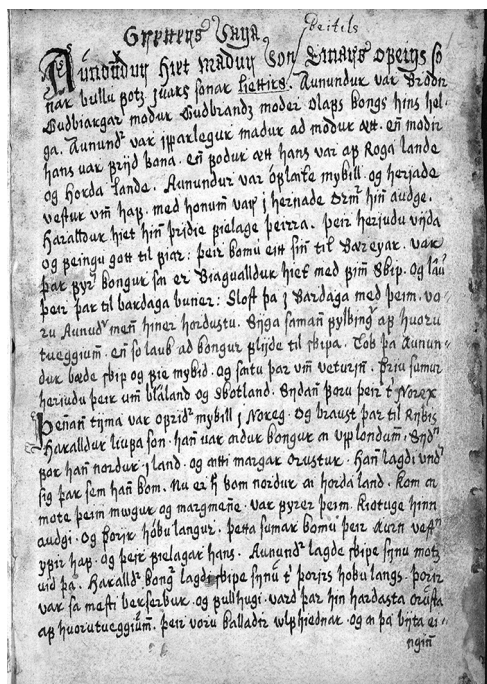 Gretters Saga
beitils
Aunundur hiet madur son Ofeigs so
nar bullu fotz juars sonar. Aunundur var Brodir
Gudbiargar modur Gudbrandz moder Olafs kongs hins hel
ga. Aunundr var madur ad modur ætt. en modir
hans var frijd kona. en fodur ætt hans var af Roga lande
og Horda lande. Aunundur var mykill. og herjade
vestur vm haf. med honum var j hernade hin audge.
Haralldur hiet hin þridie fielage þeirra. þeir herjudu vijda
og feingu gott til fiar: þeir komu eitt sin til Bareyar. var
þar fyrer kongur sa er Kiagualldur hiet med fim skip. og lau
þeir þar til bardaga buner: Slost þa j Bardaga med þeim. vo
ru Aunundr men hiner hordustu. Siga saman fylking af huoru
tueggium. en so lauk ad kongur flijde til skipa. Tok þa Aunun
dur bæde skip og fie mykid. og satu þar vm veturin. þriu sumur
heriudu þeir um Irland og Skotland. Sydan foru þeir t' Noregs
þenan tijma var ofridr mykill j Noreg. Og braust þar til Rijkis
Haralldur liufa son. han uar adur kongur a Vpplondum. Sydan
for han nordur j land. og atti margar orustur. Han lagdi undr
sig þar sem han kom. Nu er h kom nordur a horda land. kom a
mote þeim mugur og margmene. var fyrer þeim Kiotuge hinn
audgi. og þorir haku langur. þetta sumar komu þeir Aunundr vestan
yfir haf. og þeir fielagar hans. Aunundr lagde skipe sijnu motz
vid þa. Haralldr kongr lagdi skipe sijnu t' þoris haku langs. þorir
var sa mesti berserkur. og fullhugi. vard þar hin hardasta orusta
af huorutueggium. þeir voru kalladir wlfhiednar. og a þa bijta ei
ngin